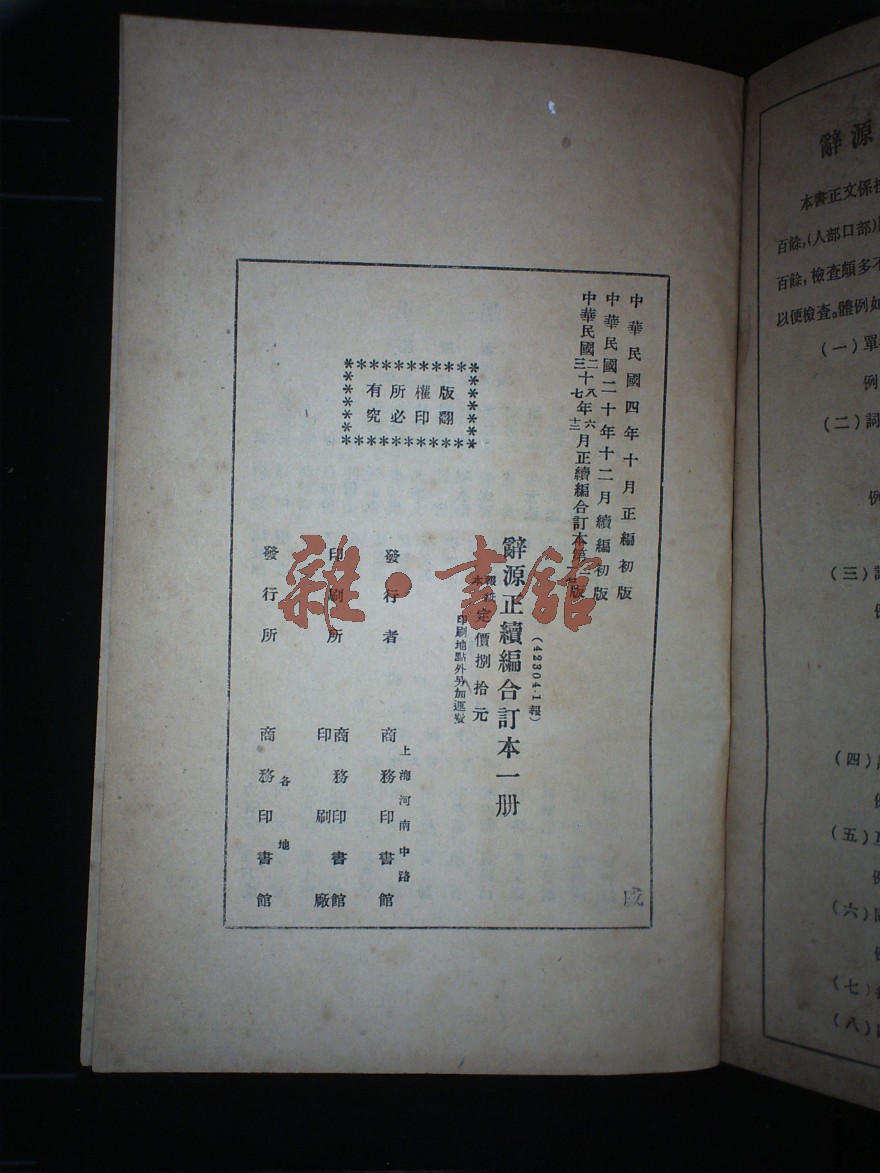 中華民國四年十月正編初版
中華民國二十年十二月續編初版
中華民國二十八年六月正續編合訂本第一版
三十七年十二月
版權所有
翻印必究
(42304·1報)
辭源正續編合訂本一册
定價捌拾元
印刷地點外另加運費
發行者
上海河南中路
商務印書館
印刷所
商務印書館
印刷廠
發行所
各地
商務印書館
雜·書館
辭源
本書正文係
百餘,(人部口部)
百餘,檢查頗多不
以便檢查。體例如
(一)單
例
(二)詞
例
(三)
例
(四)
例
(五)
例
(六)
例
(七)
(八)